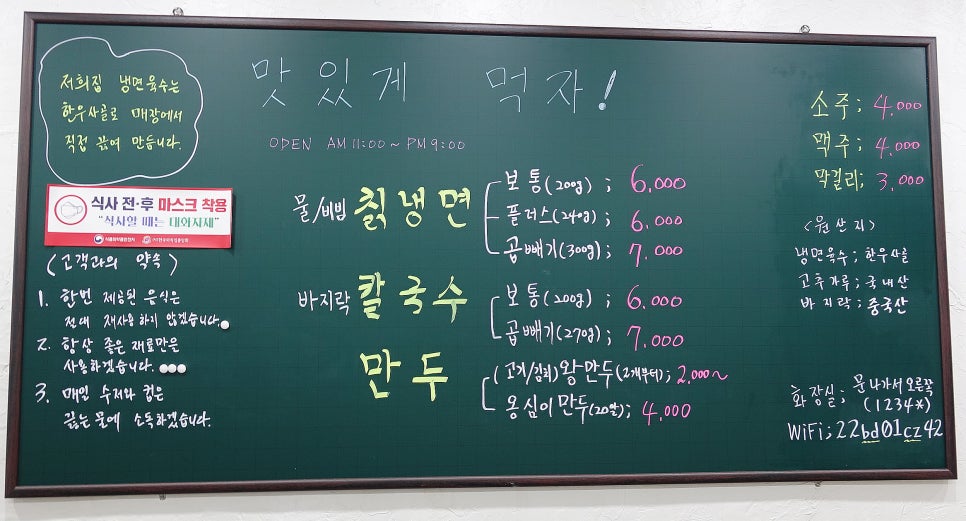 저희집 냉면육수는
한우사골로 매장에서
직접 끓여 만듭니다.
맛있게 먹자!
OPEN AM 11:00~PM 9:00
식사 전·후 마스크 착용
"식사할 때는 대화자제"
식품의약품안전처
(고객과의 약속)
1. 한번 제공된 음식은
절대 재사용하지 않겠습니다.
2. 항상 좋은 재료만을
사용하겠습니다.
3. 매일 수저와 컵은
끓는 물에 소독하겠습니다.
물/비빔 칡냉면
보통(200g); 6,000
플러스(240g); 6,000
곱빼기(300g); 7,000
바지락 칼국수
보통(200g); 6,000
곱빼기(270g); 7,000
만두
(고기/김치)왕만두(2개부터); 2,000~
옹심이만두(20알); 4,000
소주; 4,000
맥주; 4,000
막걸리; 3,000
<원산지>
냉면육수; 한우사골
고추가루; 국내산
바지락; 중국산
화장실; 문 나가서 오른쪽
(1234*)
WiFi; 22bd01cz42